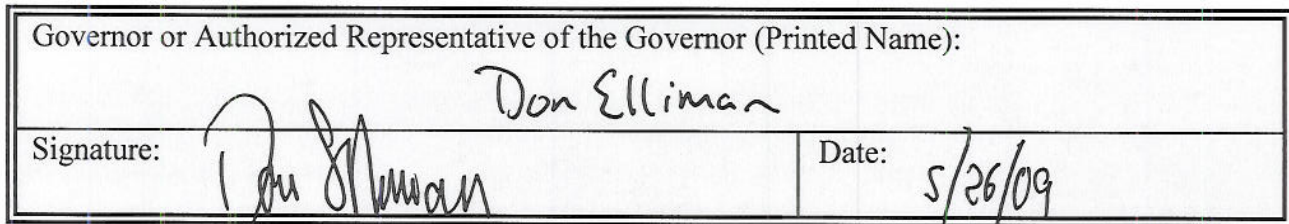 Governor or Authorized Representative of the Governor (Printed Name):
Don Elliman
Signature: Don Elliman
Date: 5/26/09